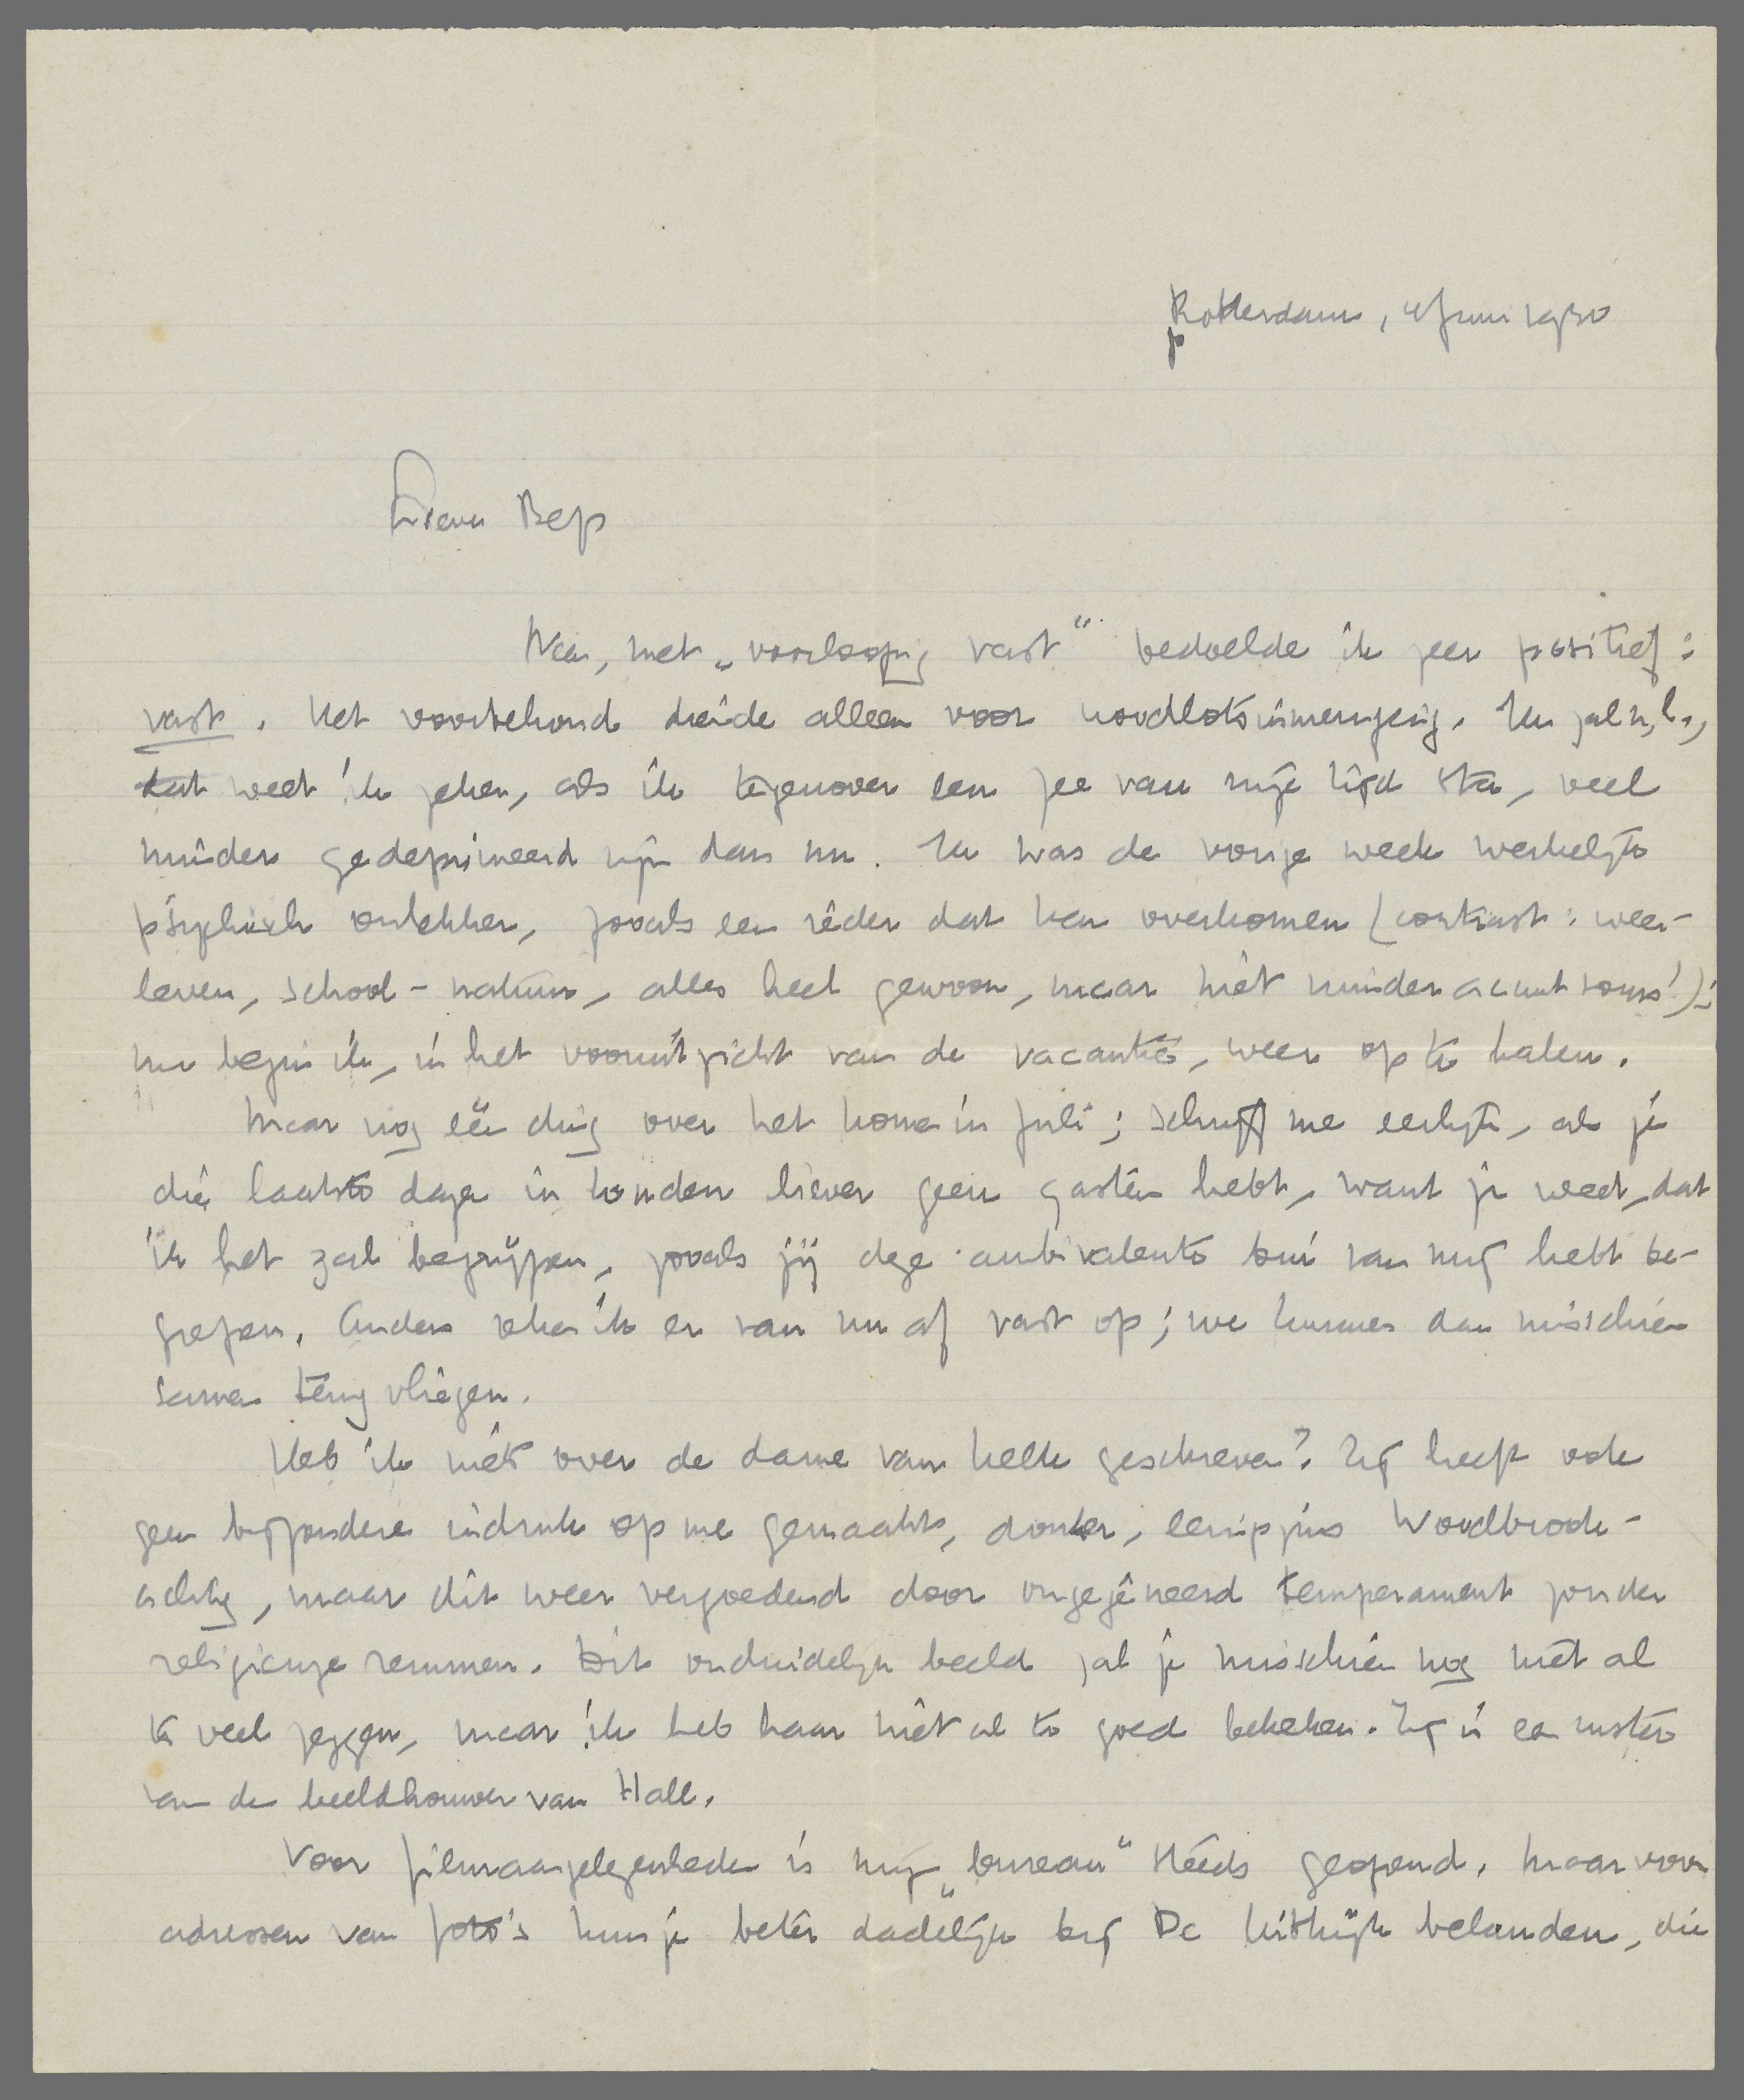 Rotterdam, 4 Juni 1930
Lieve Bep
Nee, met „voorloopig vast” bedoelde ik zeer positief:
vast. Het voorbehoud diende alleen voor noodlotsinmenging. Ik zal n.l.,
dat weet ik zeker, als ik tegenover een zee van vrije tijd sta, veel
minder gedeprimeerd zijn dan nu. Ik was de vorige week werkelijk
psychisch onlekker, zooals een ieder dat kan overkomen (contrast: weer-
leven, school-natuur, alles heel gewoon, maar niet minder acuut soms!);
nu begin ik, in het vooruitzicht van de vacantie, weer op te halen.
Maar nog één ding over het komen in Juli; schrijf me eerlijk, als je
die laatste dagen in Londen liever geen gasten hebt, want je weet, dat
ik het zal begrijpen, zooals jij deze ambivalente bui van mij hebt be-
grepen. Anders reken ik er van nu af vast op; we kunnen dan misschien
samen terug vliegen.
Heb ik niets over de dame van Hell geschreven? Zij heeft ook
geen bijzondere indruk op me gemaakt, donker, eenigszins Woodbrook-
achtig, maar dit weer vergoedend door ongegêneerd temperament zonder
religieuze remmen. Dit onduidelijk beeld zal je misschien nog niet al
te veel zeggen, maar ik heb haar niet al te goed bekeken. Zij is een zuster
van de beeldhouwer van Hall.
Voor filmaangelegenheden is mijn „bureau” steeds geopend. Maar voor
adressen van foto's kun je beter dadelijk bij De Uitkijk belanden, die